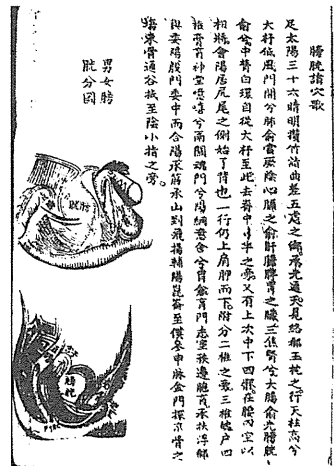 膀胱諸穴歌
足太陽三十六睛明攢竹詣曲差五處之鄉承光通天見絡郄玉枕之行天柱高兮
大杼低風門開兮肺俞當厥陰心膈之俞肝膽脾胃之臟三焦腎兮大腸俞小膀胱
俞兮中膂白環自從大杼至此去脊中寸半之旁又有上次中下四髎在腰內空以
相將會陽居尻尾之側始了背也一行仍上肩胛而下附分二椎之旁三椎魄戶四
椎膏肓神堂噫嘻兮膈關魂門兮陽綱意舍兮胃倉肓門志室秩邊胞肓承扶浮郄
與委陽殷門委中而合陽承筋承山到飛揚輔陽崑崙至僕參申脈金門探京骨之
場束骨通谷抵至陰小指之旁。
男女膀
胱分圖
膀胱
膀胱